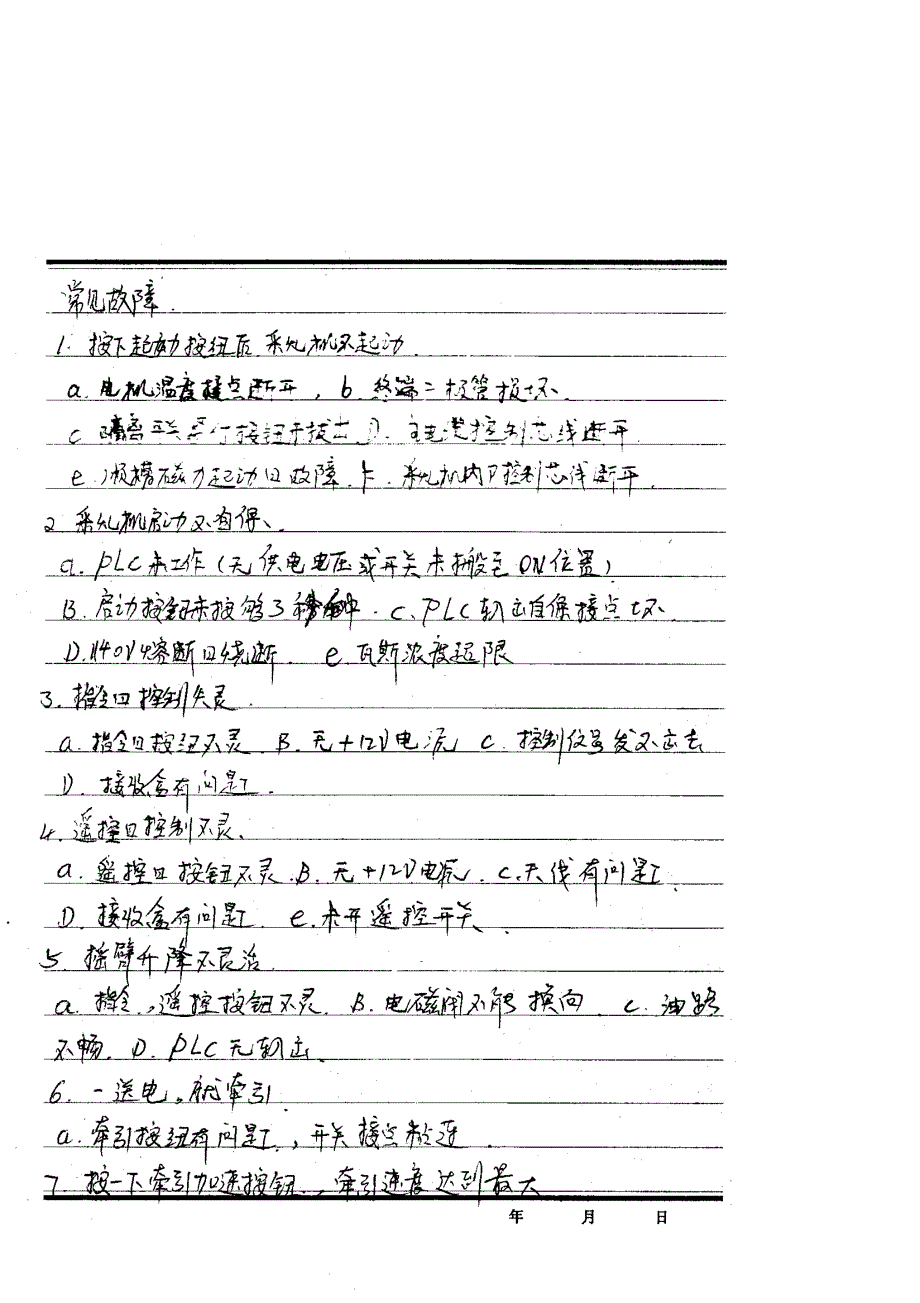 常见故障.
1. 按下起动按钮后采礼机不起动.
a. 电机温度接点断开, b. 终端二极管损坏.
c 隔离开关 按钮 拔出 D. 主电缆控制芯线断开
e. 顺槽磁力起动口故障. f. 采礼机内P控制芯线断开.
2 采礼机启动不自保、
a. PLC未工作(无供电电压或开关未搬至ON位置)
B. 启动按钮未按够3秒钟. C. PLC 轫出自保接点坏.
D. 140V熔断口烧断. e. 瓦斯浓度超限
3. 指令口控制失灵.
a. 指令口按钮不灵. B. 无+12V电流 C. 控制仪号发不出去
D. 接收盒有问题.
4. 遥控口控制不灵、
a. 遥控口按钮不灵. B. 无+12V电源. C. 天线有问题.
D. 接收盒有问题. e. 未开遥控开关、
5. 摇臂升降不灵活
a. 指令,遥控按钮不灵. B. 电磁阀不能换向. C. 油路
不畅. D. PLC无轫出.
6. 一送电,就牵引.
a. 牵引按钮有问题,开关接点粘连.
7. 按一下牵引加速按钮,牵引速度达到最大
年 月 日